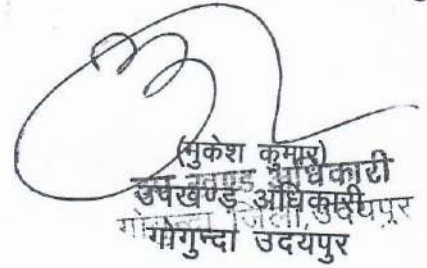 (मुकेश कुमार)
उप खण्ड अधिकारी
उपखण्ड अधिकारी
गोगुन्दा जिला, उदयपुर
गोगुन्दा उदयपुर